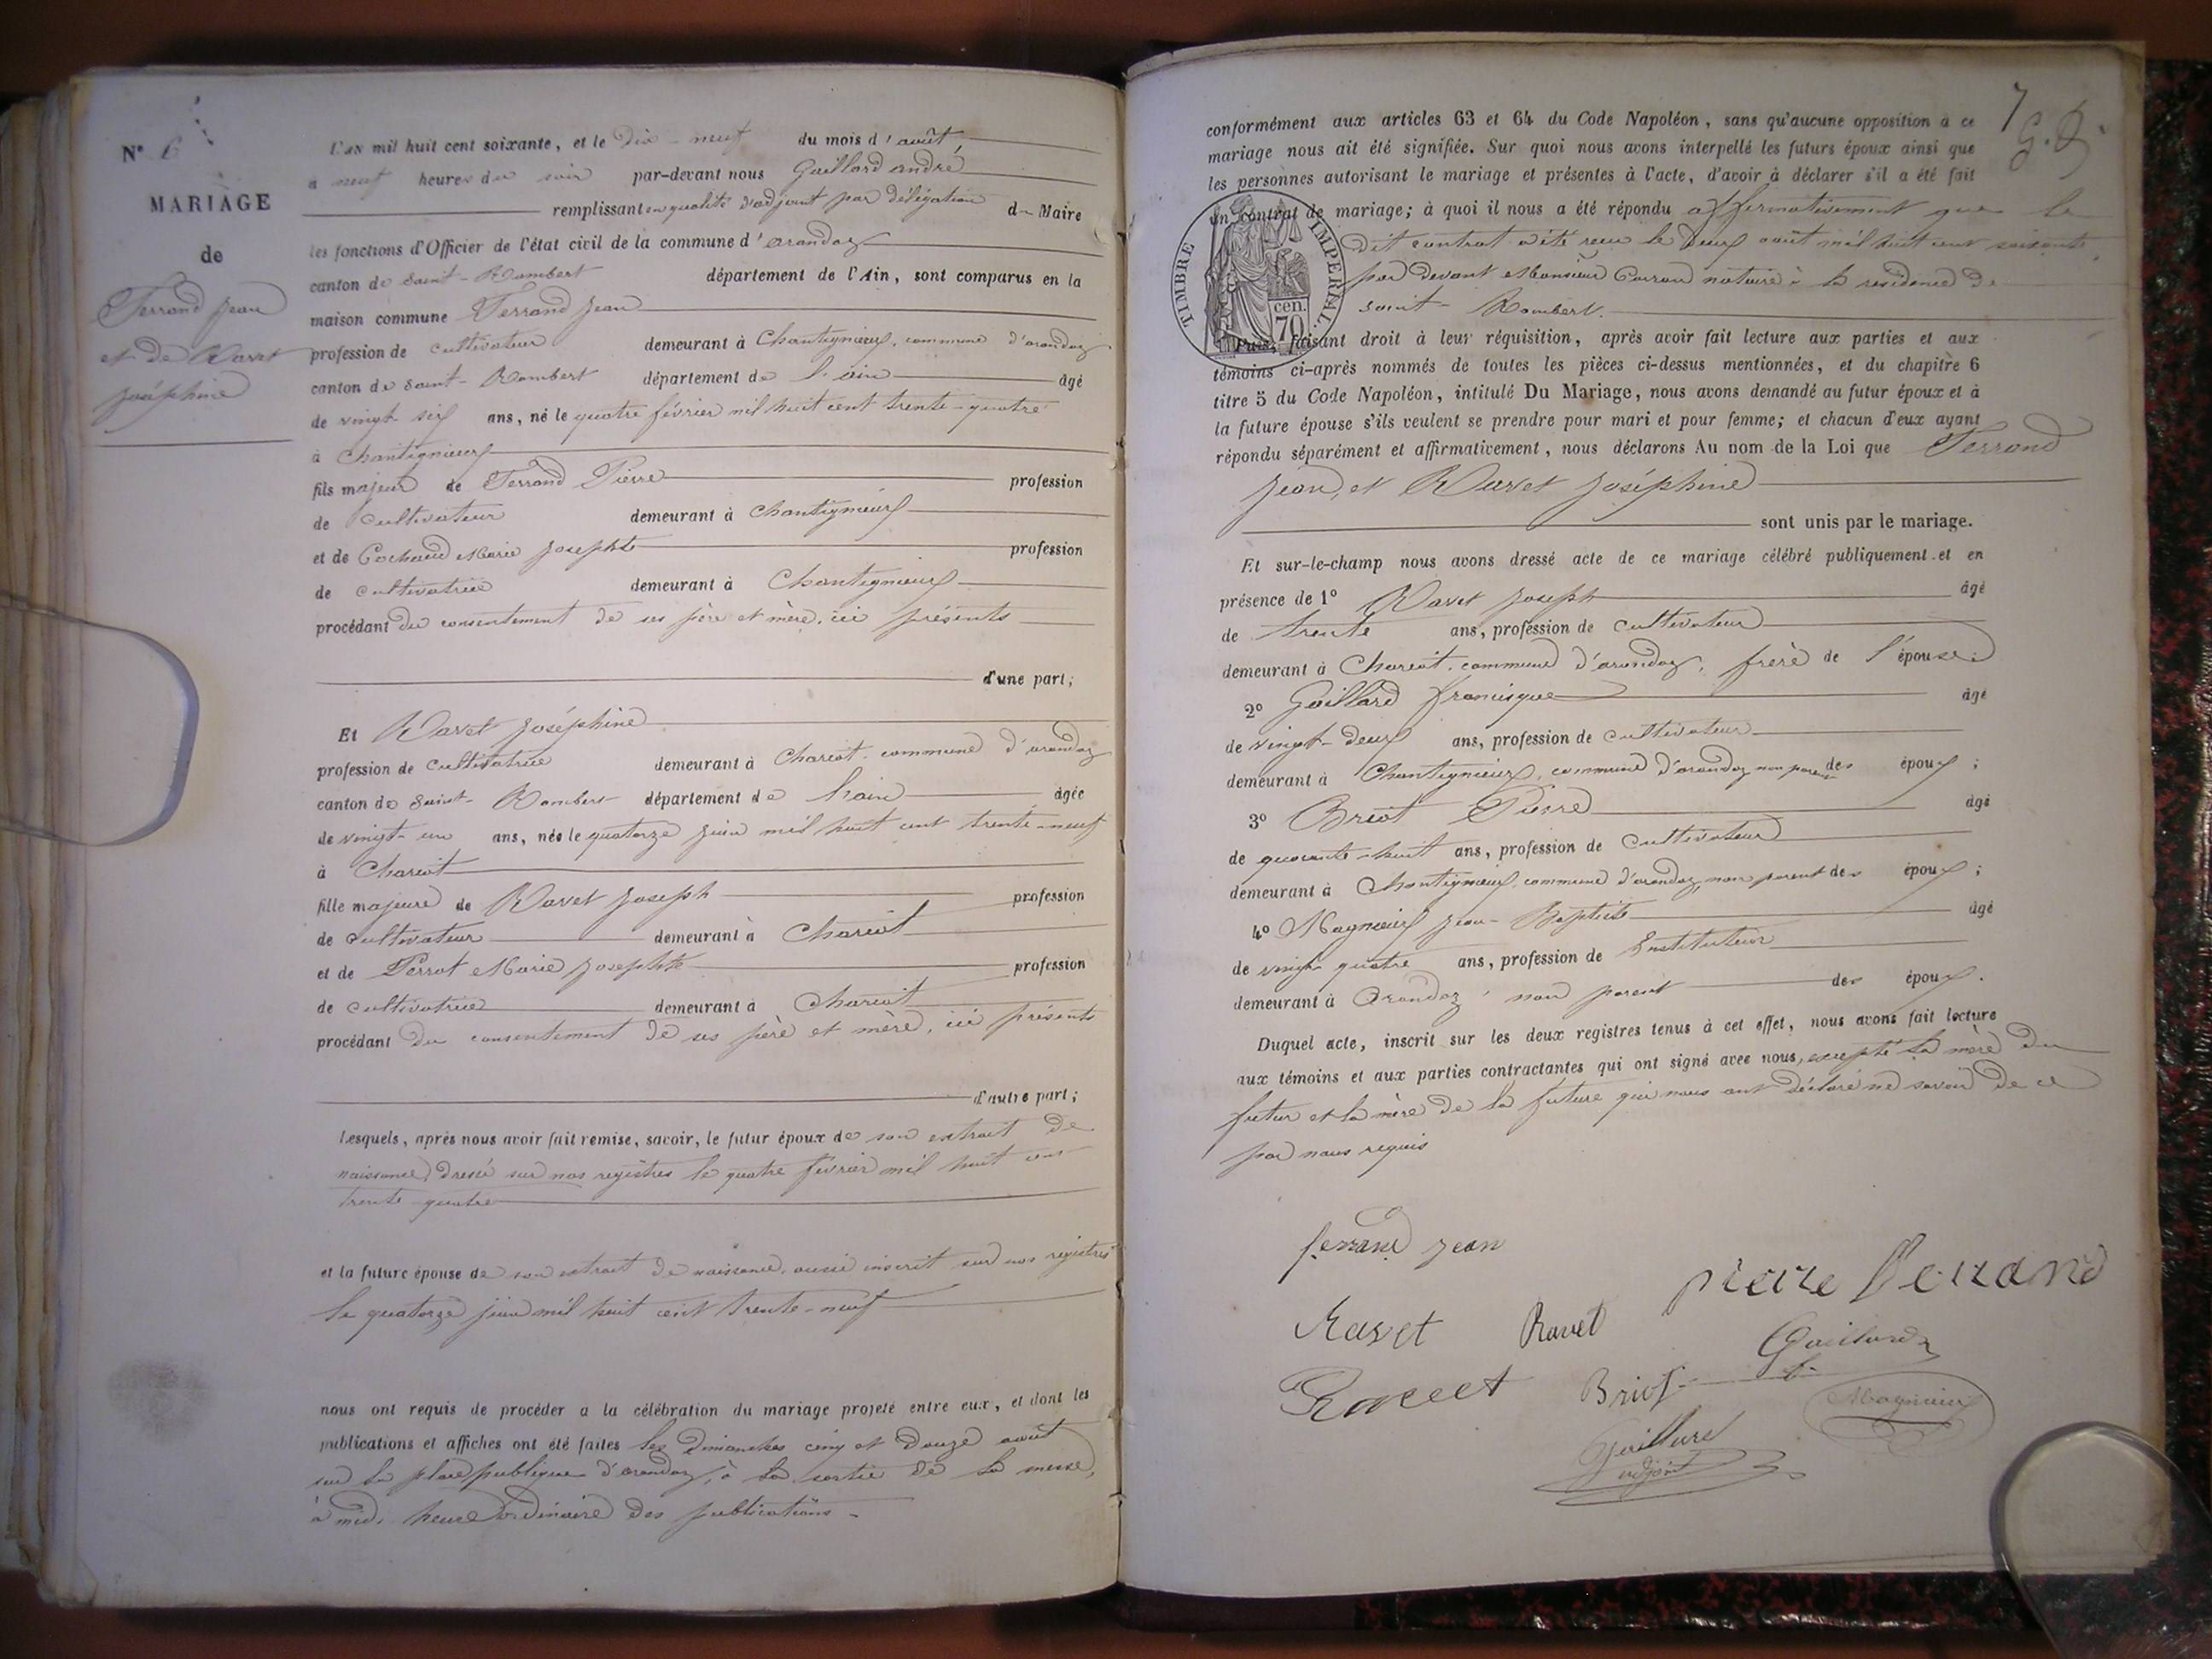 N° 6
MARIAGE
de
Ferrand Jean
et de Ravet
Joséphine
L'AN mil huit cent soixante, et le dix-neuf du mois d'août
a neuf heures du soir par-devant nous Gaillard andré
remplissant en qualité d'adjoint par délégation du Maire
les fonctions d'Officier de l'état civil de la commune d'arandaz
canton de Saint-Rambert département de l'Ain, sont comparus en la
maison commune Ferrand Jean
profession de cultivateur demeurant à Chantignieux, commune d'arandaz
canton de Saint-Rambert département de l'ain âgé
de vingt six ans, né le quatre février mil huit cent trente-quatre
à Chantignieux
fils majeur de Ferrand Pierre profession
de Cultivateur demeurant à Chantignieux
et de Cochaud Marie Josephte profession
de cultivatrice demeurant à Chantignieux
procédant du consentement de ses père et mère, ici présents
d'une part;
Et Ravet Joséphine
profession de Cultivatrice demeurant à Chareot, commune d'arandaz
canton de Saint-Rambert département de l'ain âgée
de vingt-un ans, née le quatorze juin mil huit cent trente-neuf
à Chareot
fille majeure de Ravet Joseph profession
de Cultivateur demeurant à Chareot
et de Perrot Marie Josephte profession
de cultivatrice demeurant à Chareot
procédant du consentement de ses père et mère, ici présents
d'autre part;
Lesquels, après nous avoir fait remise, savoir, le futur époux de son extrait de
naissance, dressé sur nos registres le quatre février mil huit cent
trente quatre
et la future épouse de son extrait de naissance, aussi inscrit sur nos registres
le quatorze juin mil huit cent trente-neuf
nous ont requis de procéder a la célébration du mariage projeté entre eux, et dont les
publications et affiches ont été faites les dimanches cinq et douze août
sur la place publique d'arandaz, à la sortie de la messe,
à midi heure ordinaire des publications.
7
conformément aux articles 63 et 64 du Code Napoléon, sans qu'aucune opposition à ce
mariage nous ait été signifiée. Sur quoi nous avons interpellé les futurs époux ainsi que
les personnes autorisant le mariage et présentes à l'acte, d'avoir à déclarer s'il a été fait
un contrat de mariage; à quoi il nous a été répondu affirmativement que le
dit contrat a été reçu le deux août mil huit cent soixante
par devant Monsieur notaire à la résidence de
saint-Rambert.
TIMBRE IMPERIAL.
cen.
70
Puis, faisant droit à leur réquisition, après avoir fait lecture aux parties et aux
témoins ci-après nommés de toutes les pièces ci-dessus mentionnées, et du chapitre 6
titre 5 du Code Napoléon, intitulé Du Mariage, nous avons demandé au futur époux et à
la future épouse s'ils veulent se prendre pour mari et pour femme; et chacun d'eux ayant
répondu séparément et affirmativement, nous déclarons Au nom de la Loi que Ferrand
Jean, et Ravet Joséphine
sont unis par le mariage.
Et sur-le-champ nous avons dressé acte de ce mariage célébré publiquement et en
présence de 1° Ravet Joseph âgé
de trente ans, profession de Cultivateur
demeurant à Chareot, commune d'arandaz, frère de l'épouse;
2° Gaillard francisque âgé
de vingt-deux ans, profession de Cultivateur
demeurant à Chantignieux, commune d'arandaz non parent des époux;
3° Briot Pierre âgé
de quarante-huit ans, profession de Cultivateur
demeurant à Chantignieux, commune d'arandaz, non parent des époux;
4° Magnieux Jean-Baptiste âgé
de vingt quatre ans, profession de Instituteur
demeurant à Arandaz, non parent des époux.
Duquel acte, inscrit sur les deux registres tenus à cet effet, nous avons fait lecture
aux témoins et aux parties contractantes qui ont signé avec nous, excepté la mère du
futur et la mère de la future qui nous ont déclaré ne savoir de ce
par nous requis
ferrand jean
pierre ferrand
Ravet Ravet
Gaillard f.
Ravet Briot
Magnieux
Gaillard
adjoint